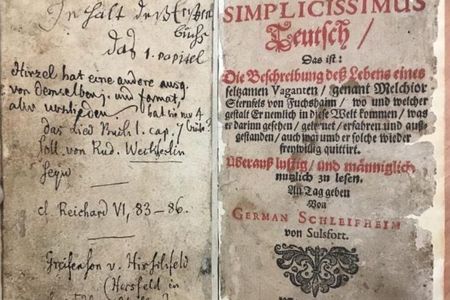 Inhalt deß Ersten
Buchs
das 1. capitel
Hirzel hat eine andere ausg.
von demselben j. und format,
aber verschieden
hat bis nur 4
das lied Buch 1. cap. 7
soll von Rud. Weckherlin
seyn
cf. Reichard VI, 83-86.
Greifenson v. Hirschfeld
(Hersfeld in
SIMPLICISSIMUS
Teutsch/
Das ist:
Die Beschreibung deß Lebens eines
seltzamen Vaganten/ genant Melchior
Sternfels von Fuchshaim/ wo und welcher
gestalt Er nemlich in diese Welt kommen/ was
er darinn gesehen/ gelernet/ erfahren und auß-
gestanden/ auch warumb er solche wieder
freywillig quittirt.
Überauß lustig/ und männiglich
nutzlich zu lesen.
An Tag geben
Von
GERMAN SCHLEIFHEIM
von Sulsfort.